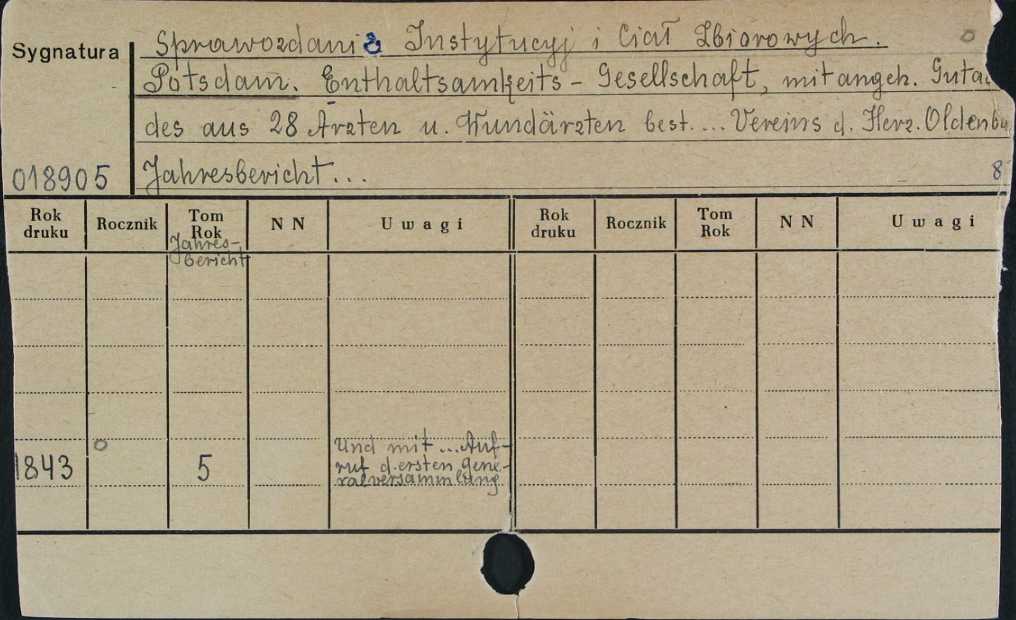 Sprawozdania Instytucyj i Ciał Zbiorowych.
Sygnatura
Potsdam. Enthaltsamkeits - Gesellschaft, mit angeh. Gutac
des aus 28 Ärzten u. Wundärzten best. ... Vereins d. Herz. Oldenbu
018905 Jahresbericht ... 8
Rok druku Rocznik Tom Rok N N Uwagi Rok druku Rocznik Tom Rok N N Uwagi
Jahres-
bericht
Und mit ... Auf-
1843 5 ruf d. ersten Gene-
ralversammlung